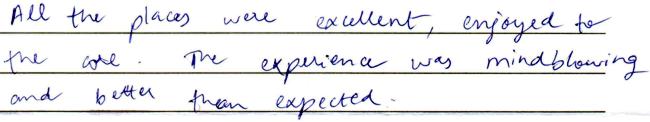 All the places were excellent, enjoyed to
the core. The experience was mindblowing
and better than expected.